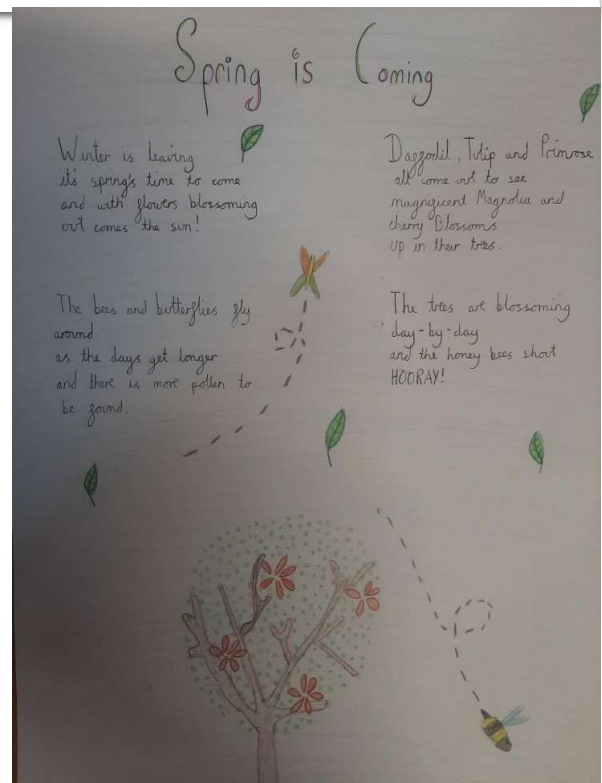 Spring is Coming
Winter is leaving
it's spring's time to come
and with flowers blossoming
out comes the sun!
The bees and butterflies fly
around
as the days get longer
and there is more pollen to
be found.
Daffodil, Tulip and Primrose
all come out to see
magnificent Magnolia and
cherry Blossoms
up in their trees.
The trees are blossoming
day-by-day
and the honey bees shout
HOORAY!